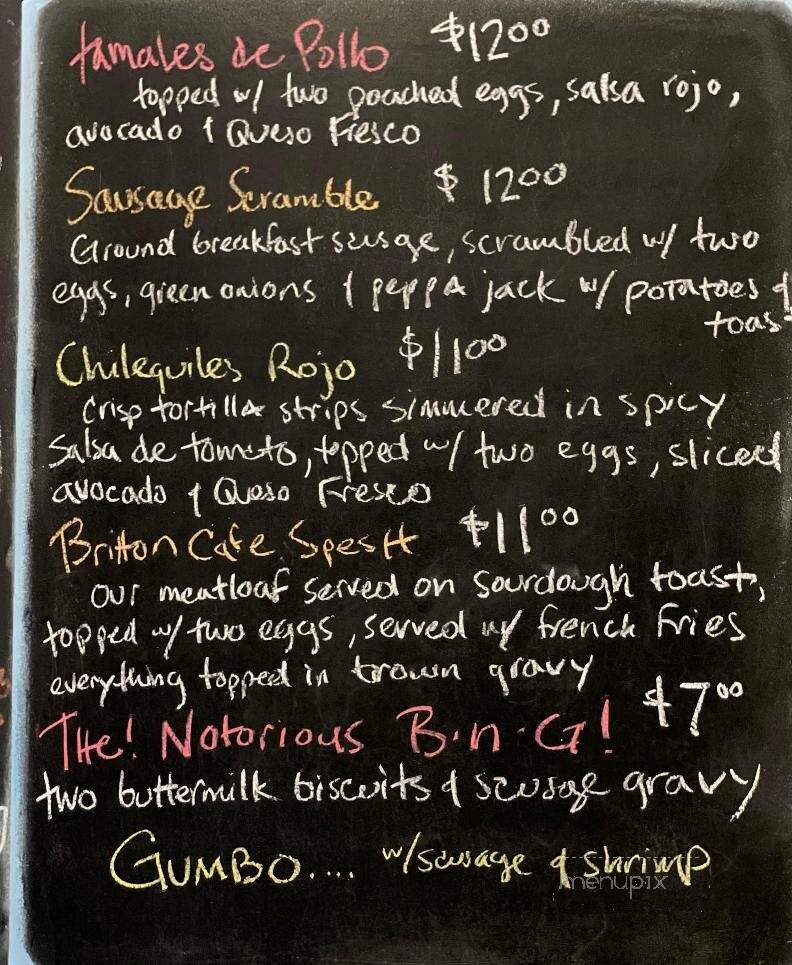 tamales de Pollo $12.00
topped w/ two poached eggs, salsa rojo,
avocado & Queso Fresco
Sausage Scramble $12.00
Ground breakfast susage, scrambled w/ two
eggs, green onions & peppa jack w/ potatoes &
toast
Chilequiles Rojo $11.00
crisp tortilla strips simmered in spicy
Salsa de tomato, topped w/ two eggs, sliced
avocado & Queso Fresco
Britton Cafe $11.00
our meatloaf served on sourdough toast,
topped w/ two eggs, served w/ french fries
everything topped in brown gravy
THE! Notorious B.n.G! $7.00
two buttermilk biscuits & susage gravy
GUMBO.... w/sausage & shrimp
menupix